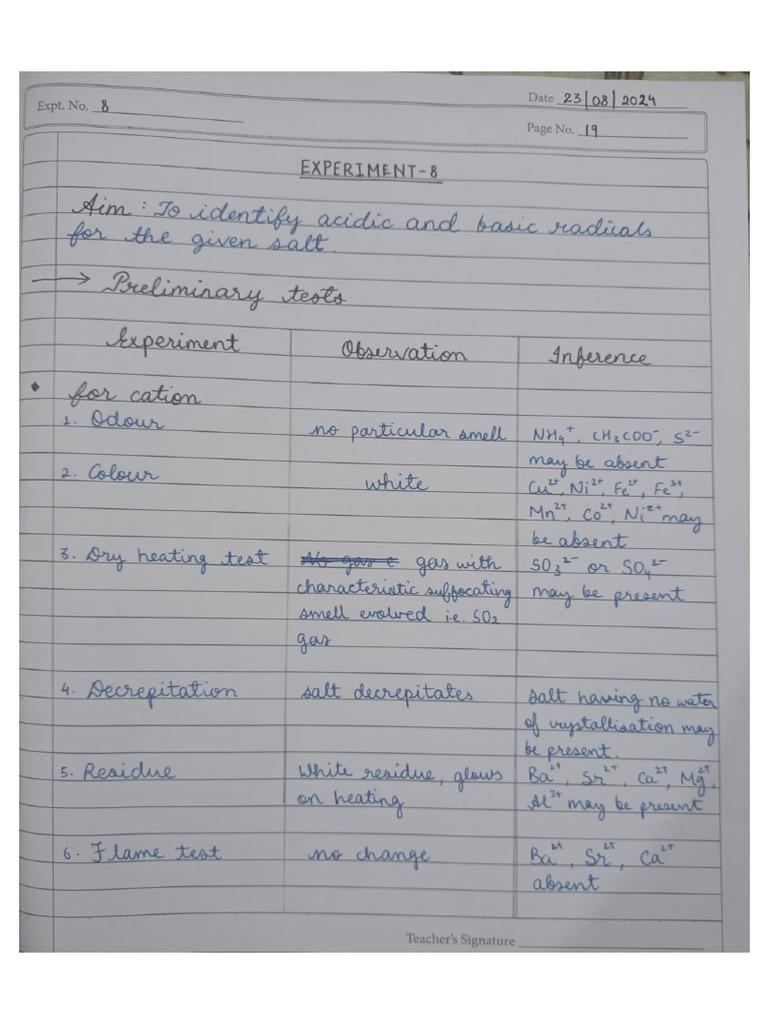 Date 23/08/2024
Expt. No. 8
Page No. 19
EXPERIMENT-8
Aim : To identify acidic and basic radicals
for the given salt.
→ Preliminary tests
Experiment Observation Inference
• for cation
1. Odour no particular smell NH₄⁺, CH₃COO⁻, S²⁻
may be absent
2. Colour white Cu²⁺, Ni²⁺, Fe²⁺, Fe³⁺,
Mn²⁺, Co²⁺, Ni²⁺ may
be absent
3. Dry heating test No gas e gas with SO₃²⁻ or SO₄²⁻
characteristic suffocating may be present
smell evolved i.e. SO₂
gas
4. Decrepitation salt decrepitates salt having no water
of crystallisation may
be present.
5. Residue White residue, glows Ba²⁺, Sr²⁺, Ca²⁺, Mg²⁺,
on heating Al³⁺ may be present
6. Flame test no change Ba²⁺, Sr²⁺, Ca²⁺
absent
Teacher's Signature